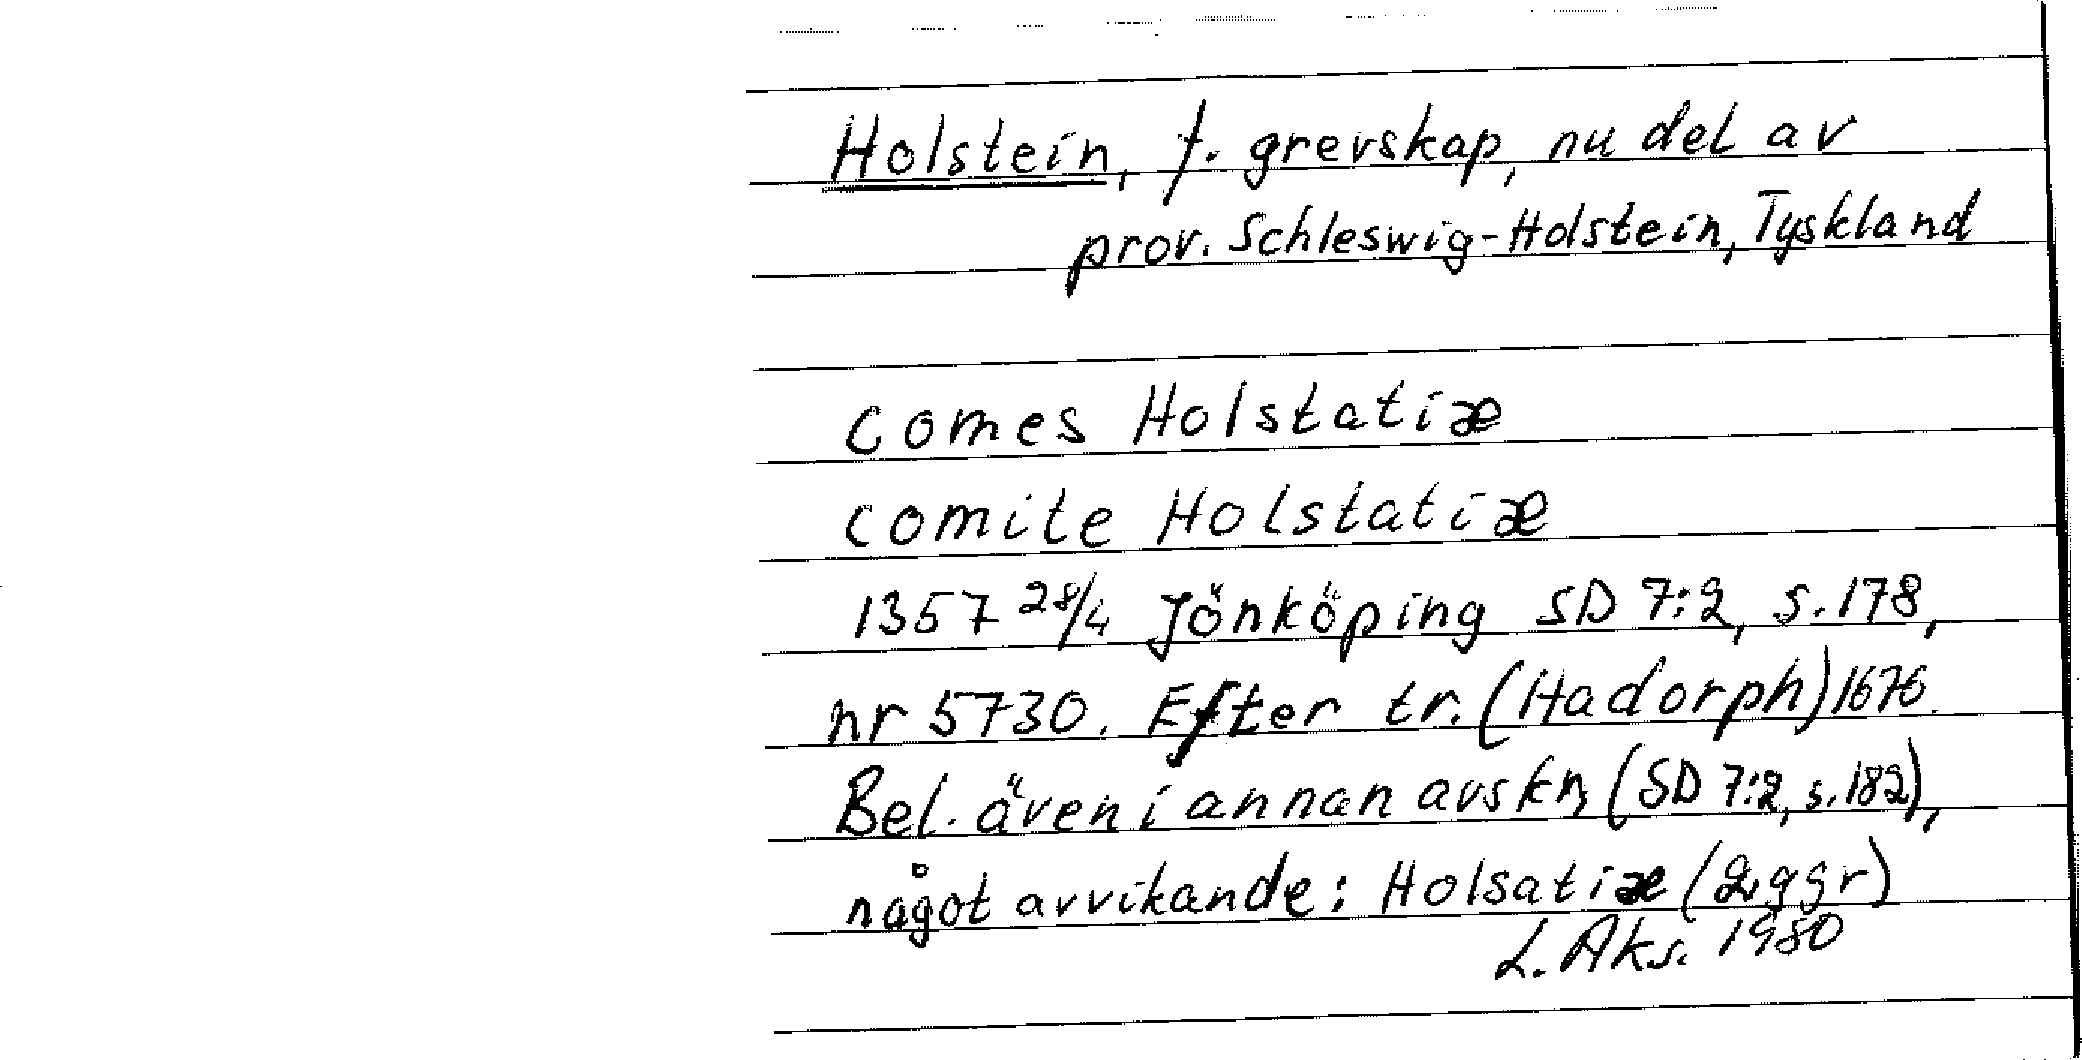 Holstein, f. grevskap, nu del av
prov. Schleswig-Holstein, Tyskland
comes Holstatiæ
comite Holstatiæ
1357 28/4 Jönköping SD 7:2, s. 178,
nr 5730. Efter tr. (Hadorph) 1676.
Bel. även i annan avskr, (SD 7:2, s. 182),
något avvikande: Holsatiæ (2 ggr)
L. Aks. 1980